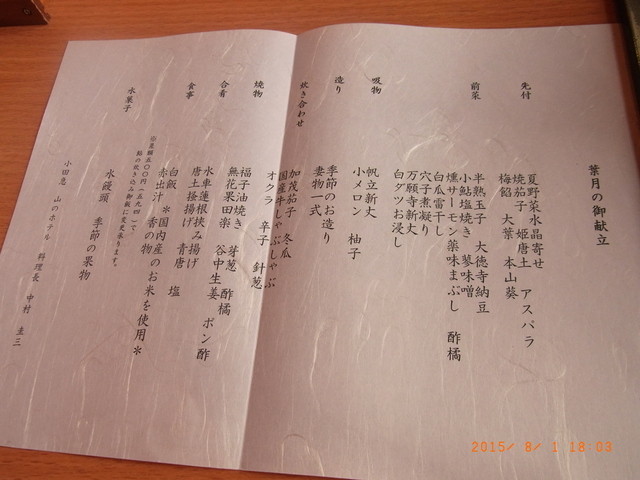 葉月の御献立
先付
夏野菜水晶寄せ
焼茄子 姫唐土 アスパラ
梅餡 大葉 本山葵
前菜
半熟玉子 大徳寺納豆
小鮎塩焼き 蓼味噌
燻サーモン薬味まぶし 酢橘
白瓜雷干し
穴子煮凝り
万願寺新丈
白ダツお浸し
吸物
帆立新丈
小メロン 柚子
造り
季節のお造り
妻物一式
炊き合わせ
加茂茄子 冬瓜
国産牛しゃぶしゃぶ
オクラ 辛子 針葱
焼物
福子油焼き 芽葱 酢橘
無花果田楽 谷中生姜
合肴
水車蓮根挟み揚げ ポン酢
唐土掻揚げ 青唐 塩
食事
白飯 *国内産のお米を使用*
赤出汁 香の物
五〇〇円(五九四)で
鮎の炊き込み御飯に変更承ります。
水菓子
水饅頭 季節の果物
小田急 山のホテル 料理長 中村 圭三
2015/ 8/ 1 18:03